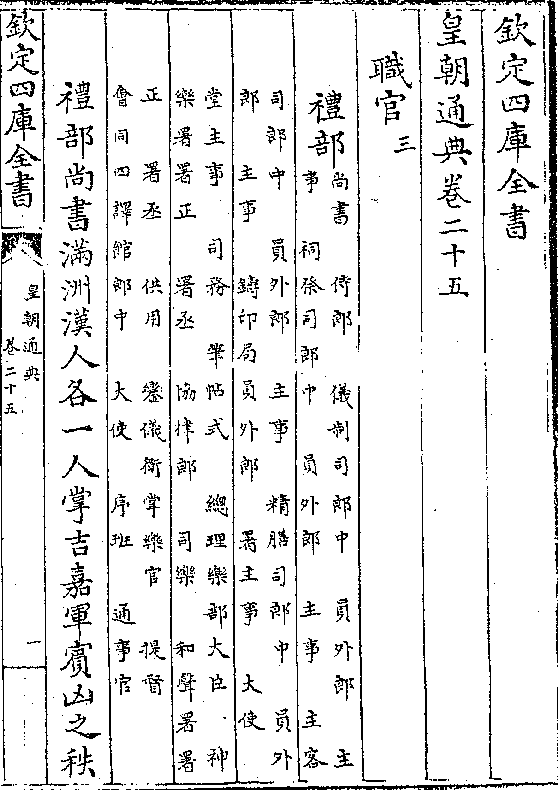 欽定四庫全書
皇朝通典卷二十五
職官三
禮部尚書 侍郎 儀制司郎中 員外郎 主
事 祠祭司郎中 員外郎 主事 主客
司郎中 員外郎 主事 精膳司郎中 員外
郎 主事 鑄印局員外郎 署主事 大使
堂主事 司務 筆帖式 總理樂部大臣 神
樂署署正 署丞 協律郎 司樂 和聲署署
正 署丞 供用 鑾儀衛掌樂官 提督
會同四譯館郎中 大使 序班 通事官
禮部尚書滿洲漢人各一人掌吉嘉軍賓凶之秩
欽定四庫全書
皇朝通典
卷二十五
一